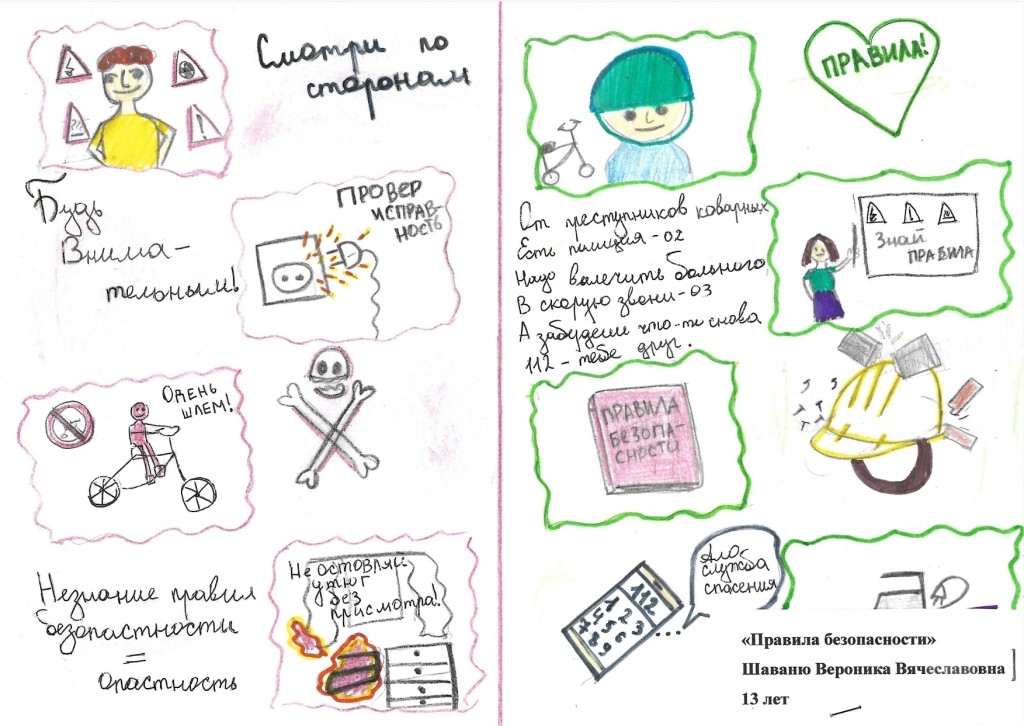 Смотри по
сторонам
Будь
Внима-
тельным!
ПРОВЕР
ИСПРАВ-
НОСТЬ
ОДЕНЬ
ШЛЕМ!
Незнание правил
безопастности
=
опастность
Не оставляй
утюг
без
присмотра!
ПРАВИЛА!
От преступников коварных
Есть полиция - 02
Надо вылечить больного
В скорую звони - 03
А забудеш что-ти снова
112 - тебе друг.
Знай
ПРАВИЛА
ПРАВИЛА
БЕЗОПА-
СНОСТИ
112
1 2 3
4 5 6
7 8 9
Ало-
служба
спасения
«Правила безопасности»
Шаваню Вероника Вячеславовна
13 лет